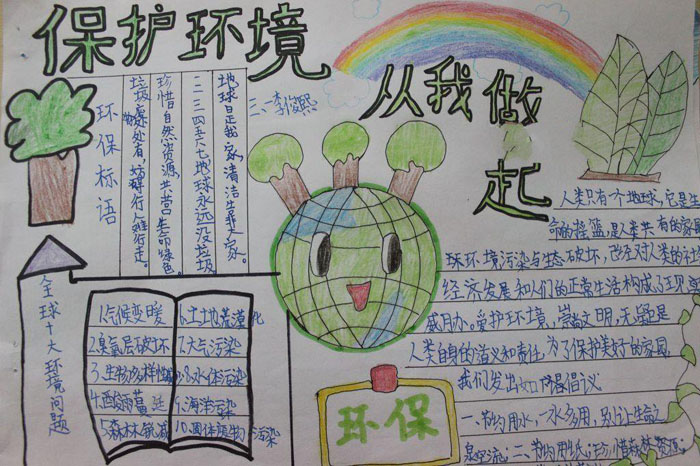 保护环境
从我做起
三、一李俊熙
环保标语
地球日正我家,清洁生靠大家。
一二三四五六七,地球永远没垃圾
珍惜自然资源,共营生命绿色。
垃圾处处有,妨碍行人难行走。
全球十大环境问题
1.气候变暖
2.臭氧层破坏
3.生物多样性
4.酸雨蔓延
5.森林锐减
6.土地荒漠化
7.大气污染
8.水体污染
9.海洋污染
10.固体废物污染
环保
人类只有一个地球,它是生
命的摇篮,是人类共有的家园
球环境污染与生态破坏,改变对人类的社
经济发展和人们的正常生活构成了现实
威胁。爱护环境,崇尚文明,无疑是
人类自身的道义和责任,为了保护美好的家园,
我们发出如下倡议
一、节约用水,一水多用,别让生命之
泉空流;二、节约用纸;珍惜森林资源;